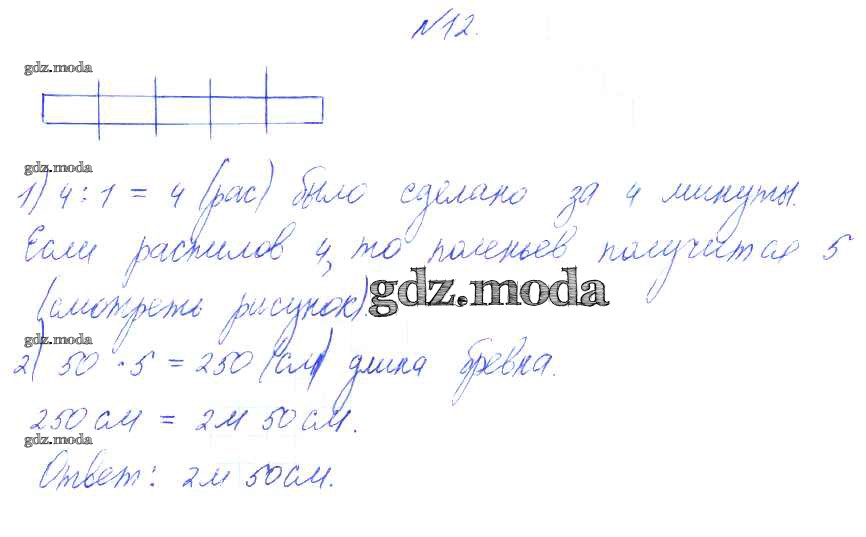 №12.
gdz.moda
gdz.moda
1) 4 : 1 = 4 (рас) было сделано за 4 минуты.
Если распилов 4, то поленьев получится 5
(смотреть рисунок).
gdz.moda
gdz.moda
2) 50 · 5 = 250 (см) длина бревна.
250 см = 2м 50 см.
gdz.moda
Ответ: 2м 50см.